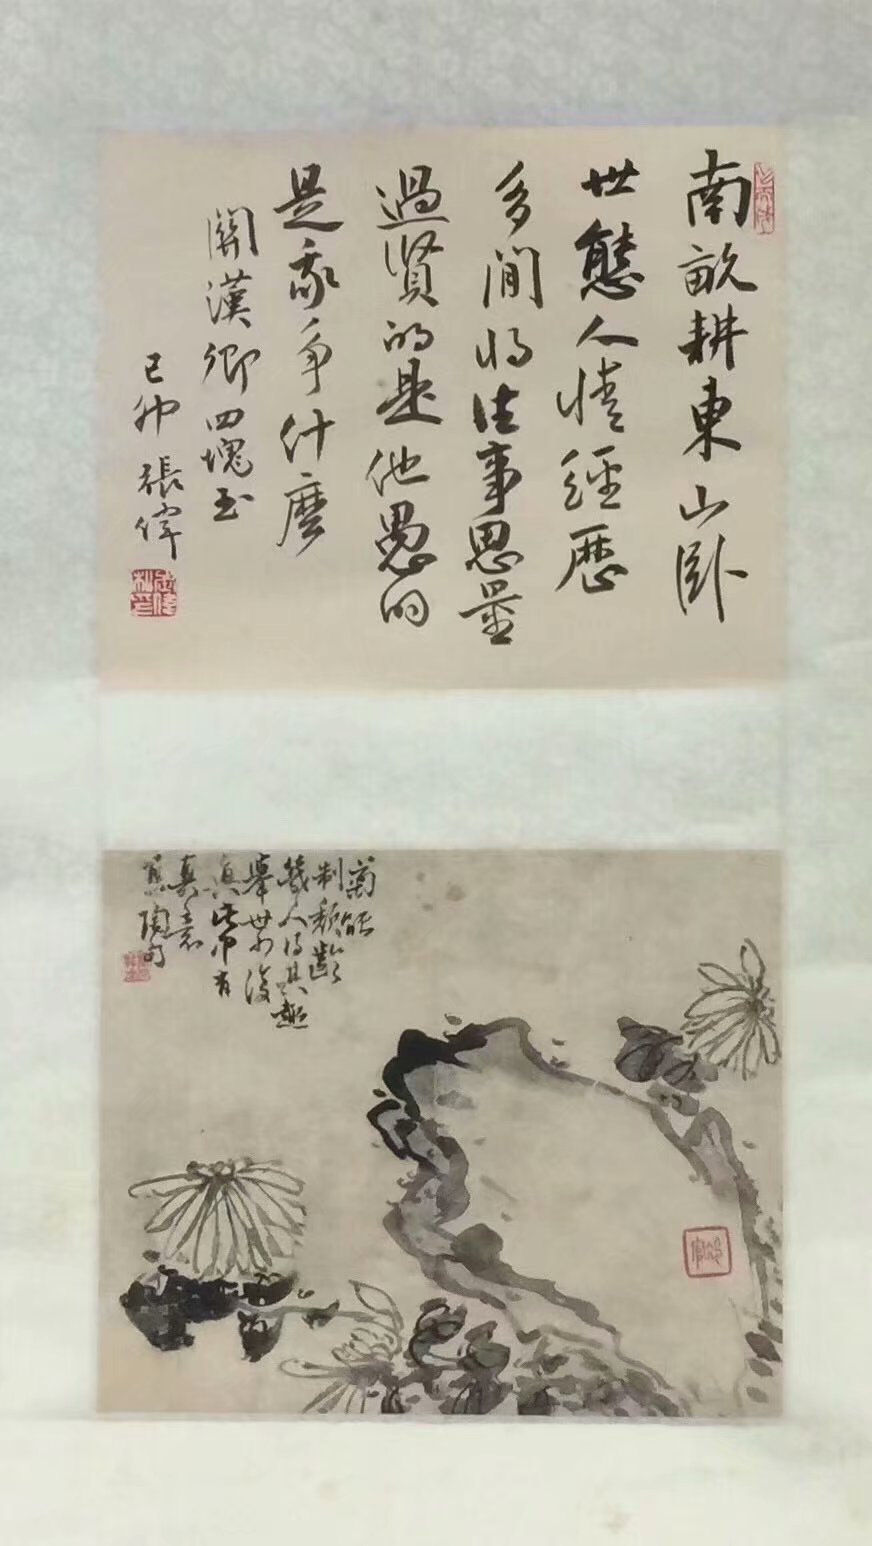 南畝耕東山卧
世態人情經歷
多閒将往事思量
過賢的是他愚的
是我争什麼
關漢卿四塊玉
己卯張偉
菊能
制頹齡
幾人得其趣
舉世少復
真此中有
真意
陶句